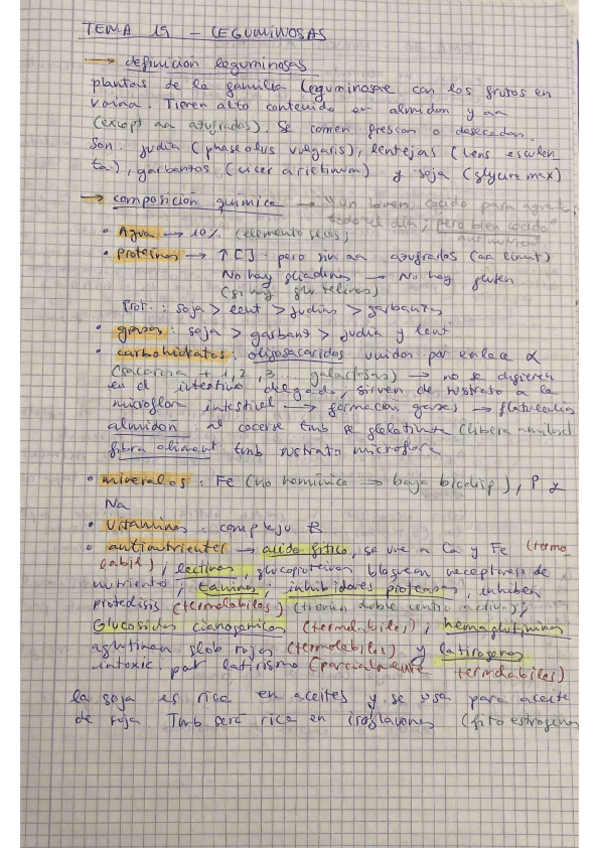 TEMA 19 - LEGUMINOSAS
→ definición leguminosas
plantas de la familia leguminosae con los frutos en
vaina. Tienen alto contenido en almidon y aa
(except aa azufrados). Se comen frescas o desecadas.
Son: judía (phaseolus vulgaris), lentejas (lens esculen
ta), garbanzos (cicer arietinum) y soja (glycine max)
→ composición química → "un buen cocido para aguantar
todo el día, pero bien cocido"
antinutrient
• Agua → 10% (elemento secos)
• proteinas → ↑[ ] pero sin aa azufrados (aa limit)
No hay gliadinas → No hay gluten
(si hay glutelinas)
Prot.: soja > lent > judias > garbanzos
• grasas: soja > garbanz > judia y lent
• carbohidratos: oligosacaridos unidos por enlace α
(sacarosa + 1, 2, 3 galactosas) → no se digieren
en el intestino delgado, sirven de sustrato a la
microflora intestinal → formacion gases → flatulencia
almidon: al cocerse tmb se gelatiniza (libera amilosa)
fibra aliment. tmb sustrato microflora
• minerales: Fe (no hemínico → baja biodisp), P y
Na
• vitaminas: complejo B
• antinutrientes → acido fitico, se une a Ca y Fe (termo
labil); lectinas, glucoproteinas bloquean receptores de
nutrientes; taninos; inhibidores proteasas, inhiben
proteolisis (termolabiles) (tienen doble centro activo);
Glucosidos cianogenicos (termolabiles); hemaglutininas
aglutinan glob rojos (termolabiles) y latirogenos
intoxic. por latirismo (parcialmente termolabiles)
la soja es rica en aceites y se usa para aceite
de soja. Tmb será rica en isoflavonas (fitoestrogenos